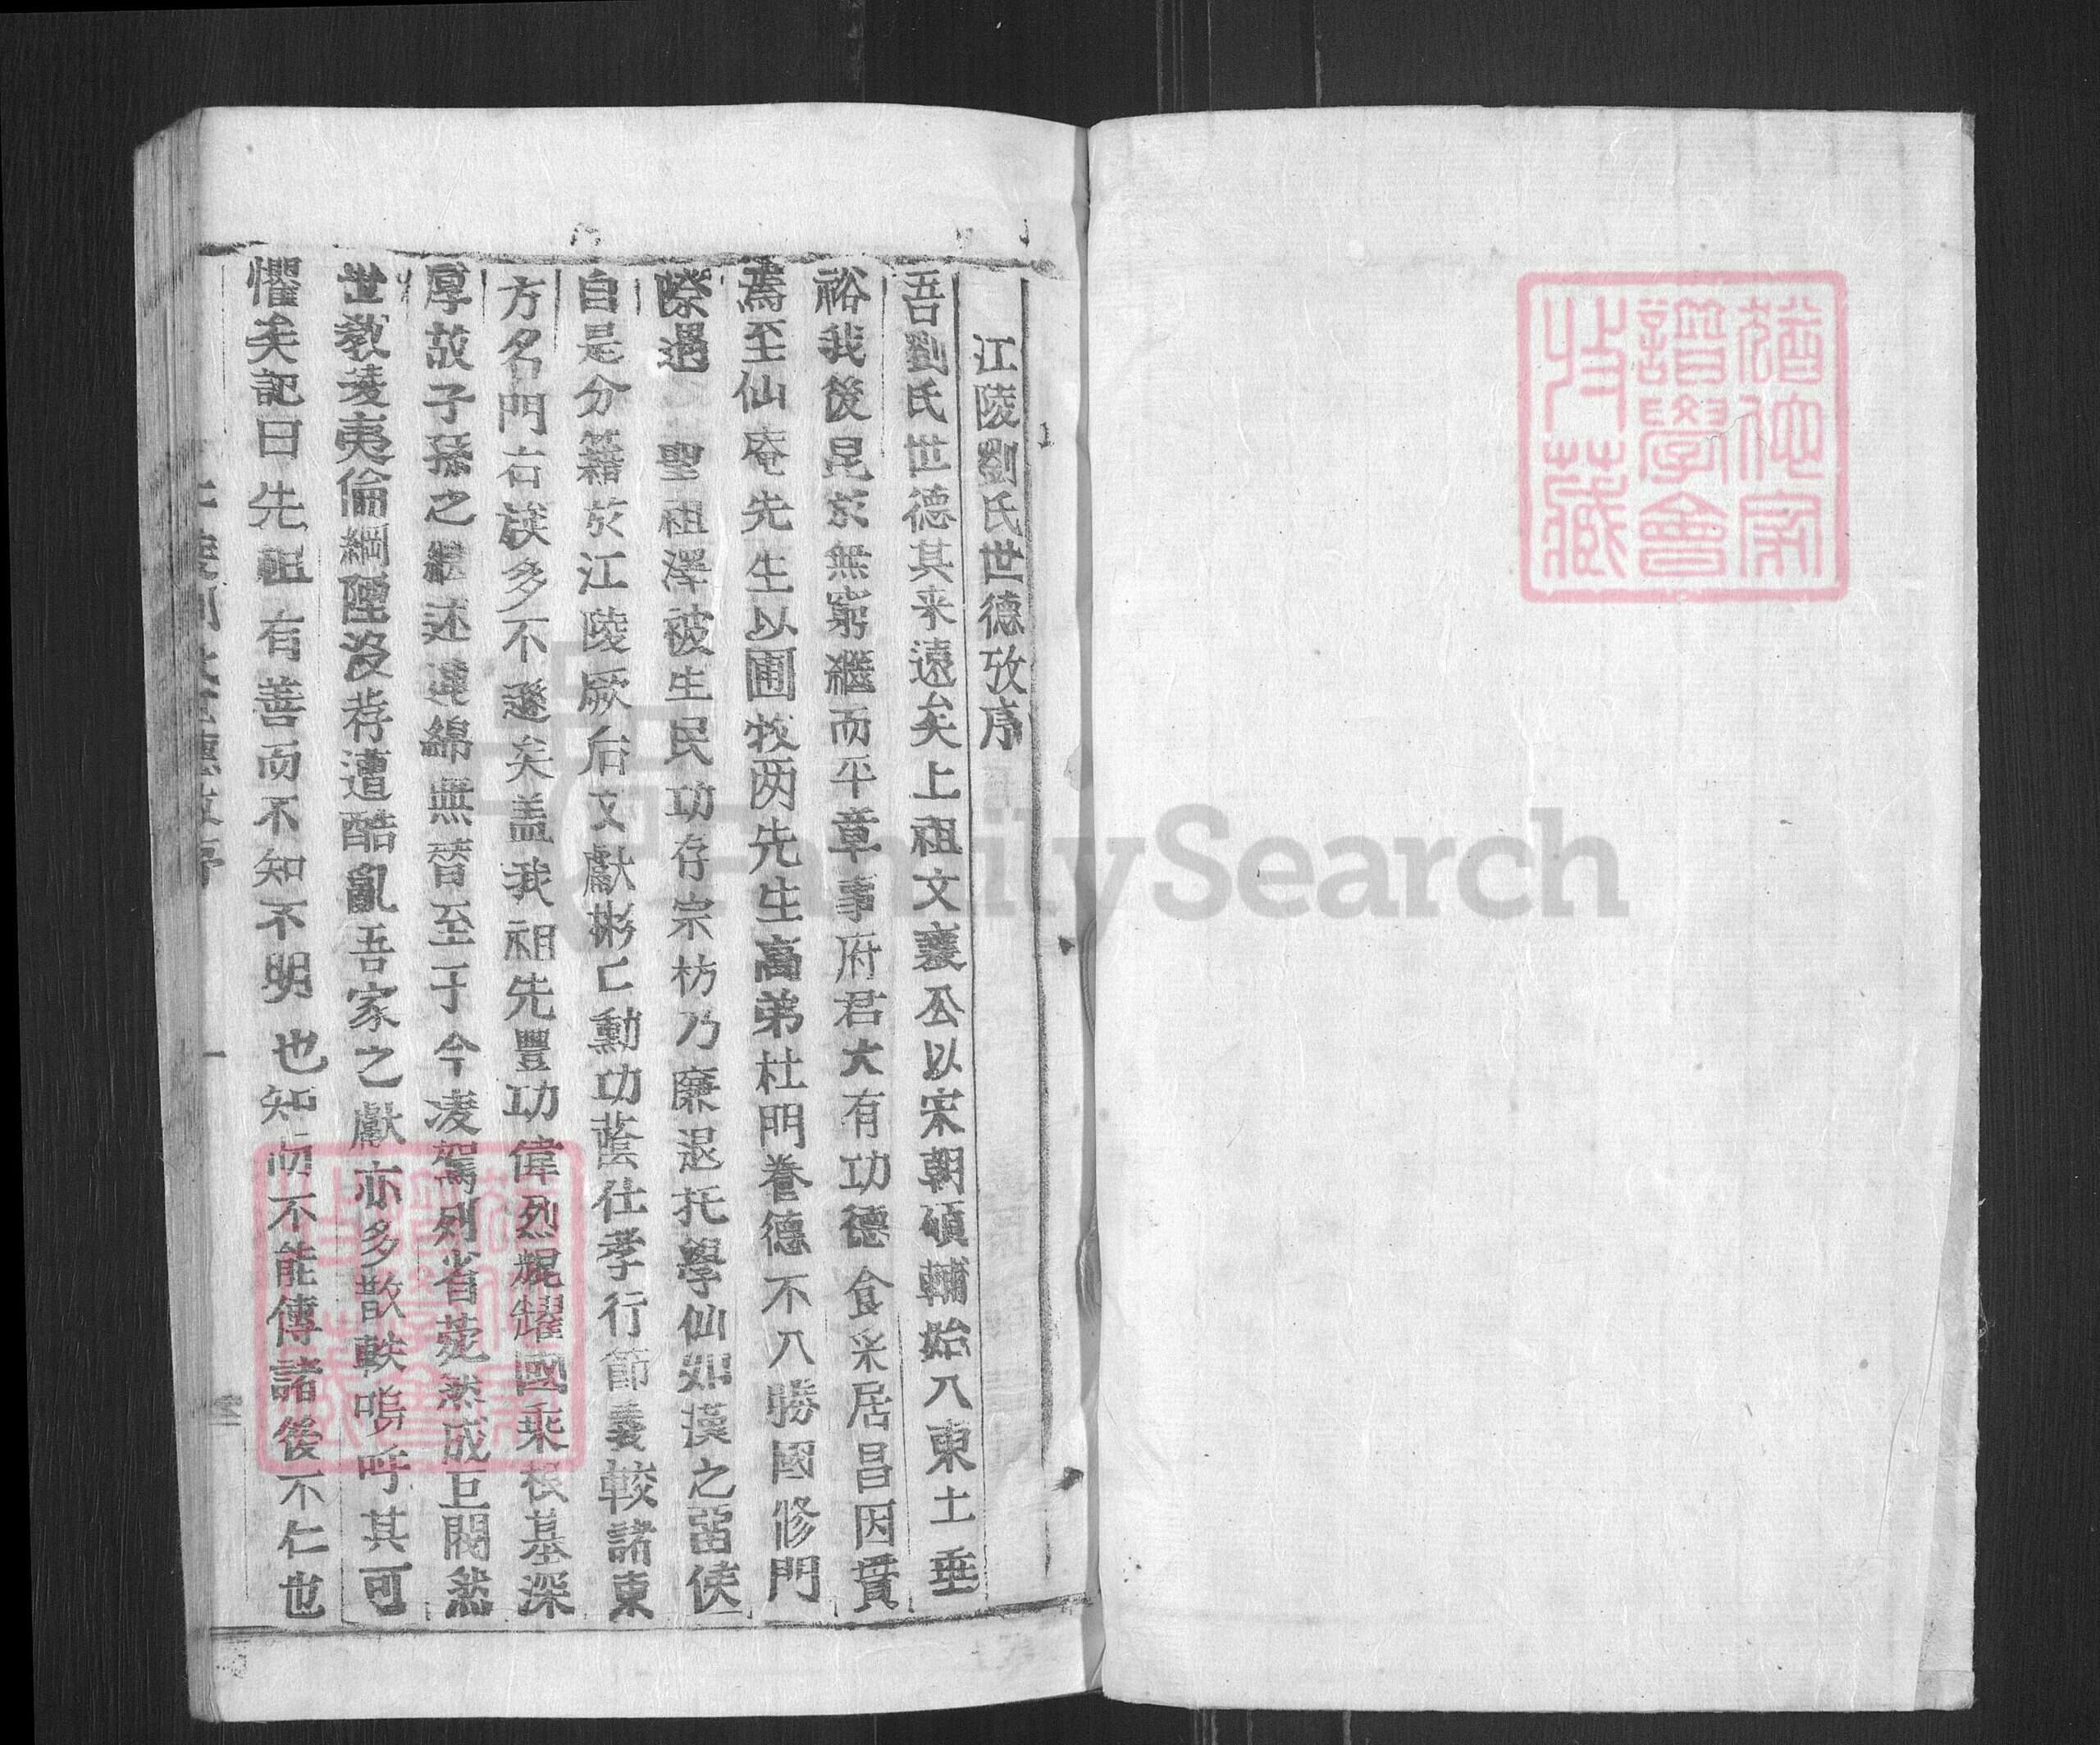 猶他家
譜學會
收藏
江陵劉氏世德攷序
吾劉氏世德其来遠矣上祖文襄公以宋朝碩輔始入東土垂
裕我後昆於無窮繼而平章事府君大有功德食采居昌因貫
焉至仙庵先生以圃牧两先生高弟杜門眷德不入勝國修門
際遇 聖祖澤被生民功存宗枋乃廉退托學仙如漢之留侯
自是分籍於江陵厥后文獻彬匕勳功蔭仕孝行節義較諸東
方名門右族多不遜矣盖我祖先豐功偉烈焜耀國乘根基深
厚故子孫之繼述連綿無替至于今凌駕列省蔚然成巨閥然
世教夌夷倫綱堙没荐遭酷亂吾家之獻亦多散軼嗚呼其可
懼矣記曰先祖有善而不知不明也知而不能傳諸後不仁也
一
FamilySearch